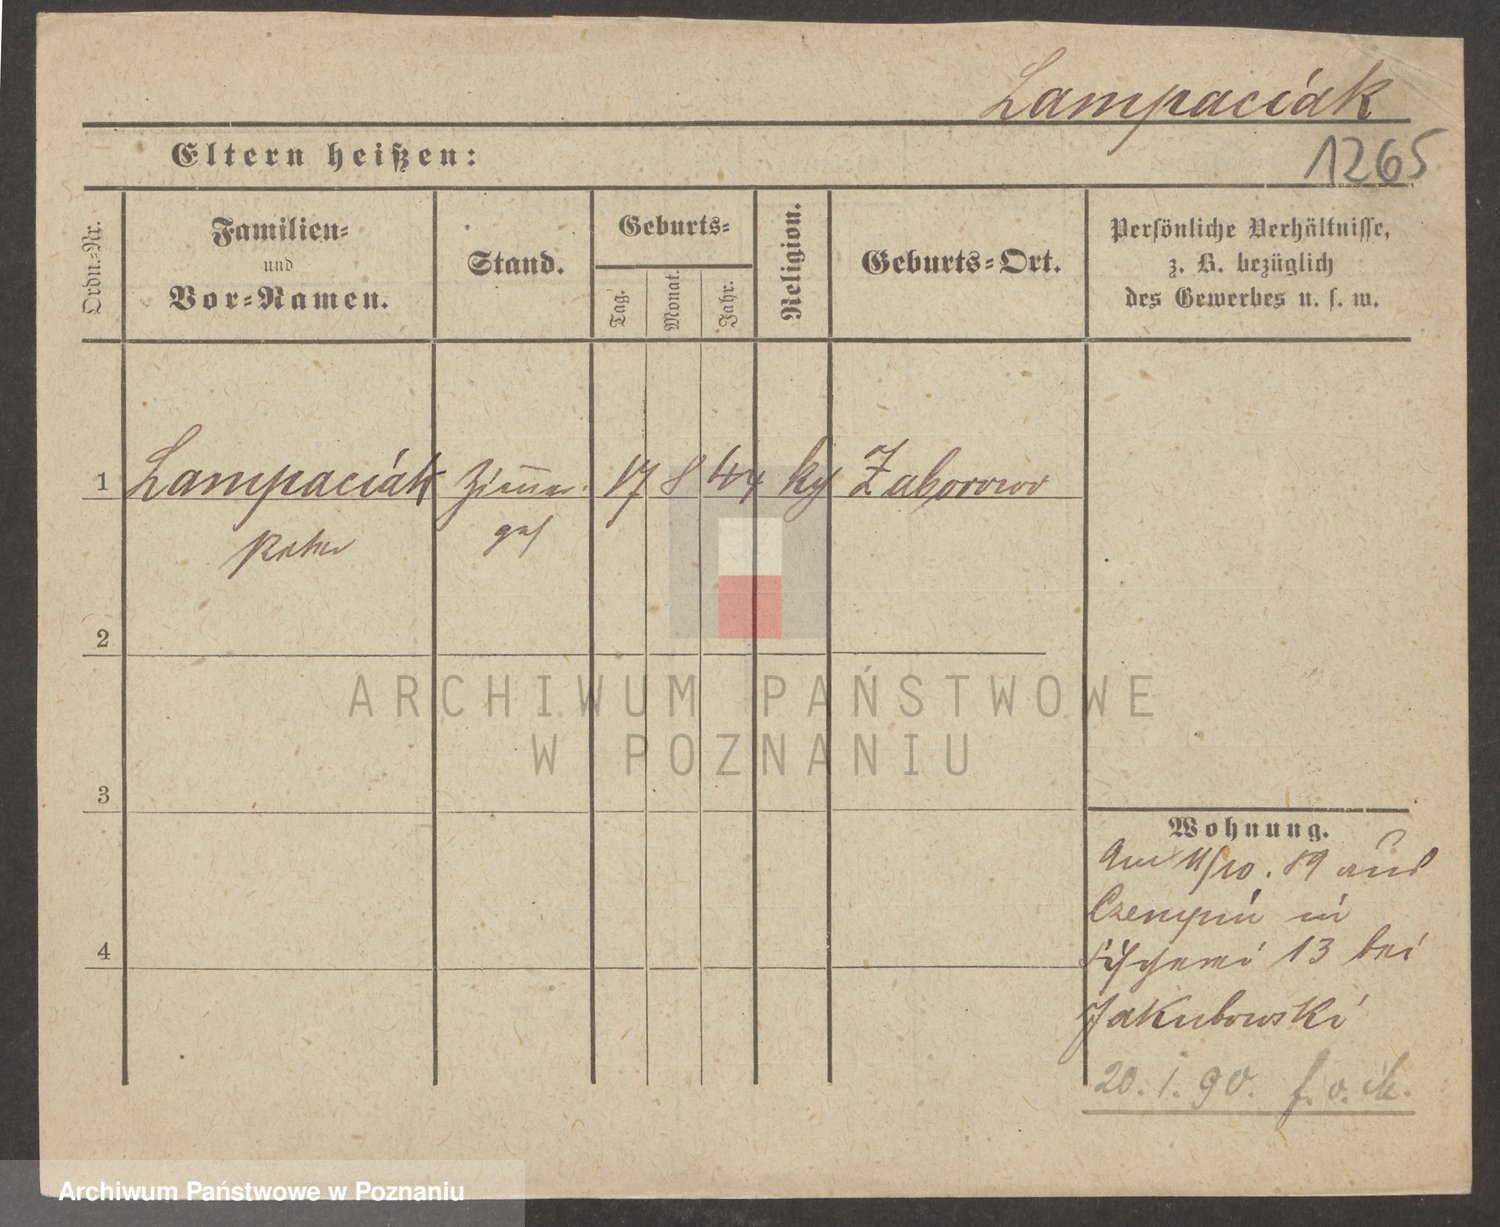 Lampaciak
1265
Eltern heißen:
Ordn.-Nr.
Familien-
und
Vor-Namen.
Stand.
Geburts-
Tag.
Monat.
Jahr.
Religion.
Geburts-Ort.
Persönliche Verhältnisse,
z. B. bezüglich
des Gewerbes u. s. w.
1 Lampaciak 17 8 44 Zaborowo
2
3
4
Wohnung.
Am 11/10. 89 aus
Czempin in
Fischerei 13 bei
Jakubowski
20. 1. 90.
ARCHIWUM PAŃSTWOWE
W POZNANIU
Archiwum Państwowe w Poznaniu